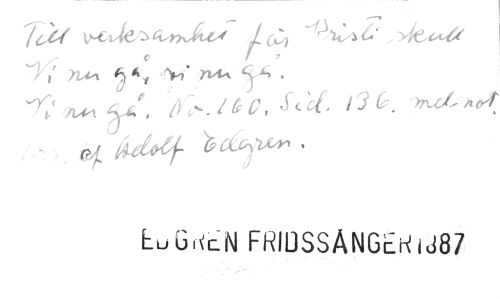 Till verksamhet för Kristi skull
Vi nu gå, vi nu gå.
Vi nu gå. No. 160. Sid. 136. mel-not.
af Adolf Edgren.
EDGREN FRIDSSÅNGER 1887